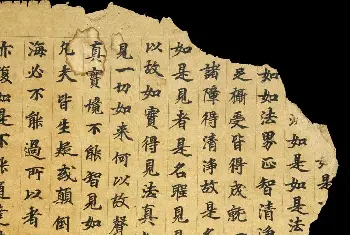 是
如是如是法
如如法界正智清淨
足攝受皆得成就一
諸障得清淨故是名
如是見者是名聖見
以故如實得見法真
見一切如來何以故聲
真實境不能智見如
凡夫皆生疑惑顛倒
海必不能過所以者
亦復如是不能通達